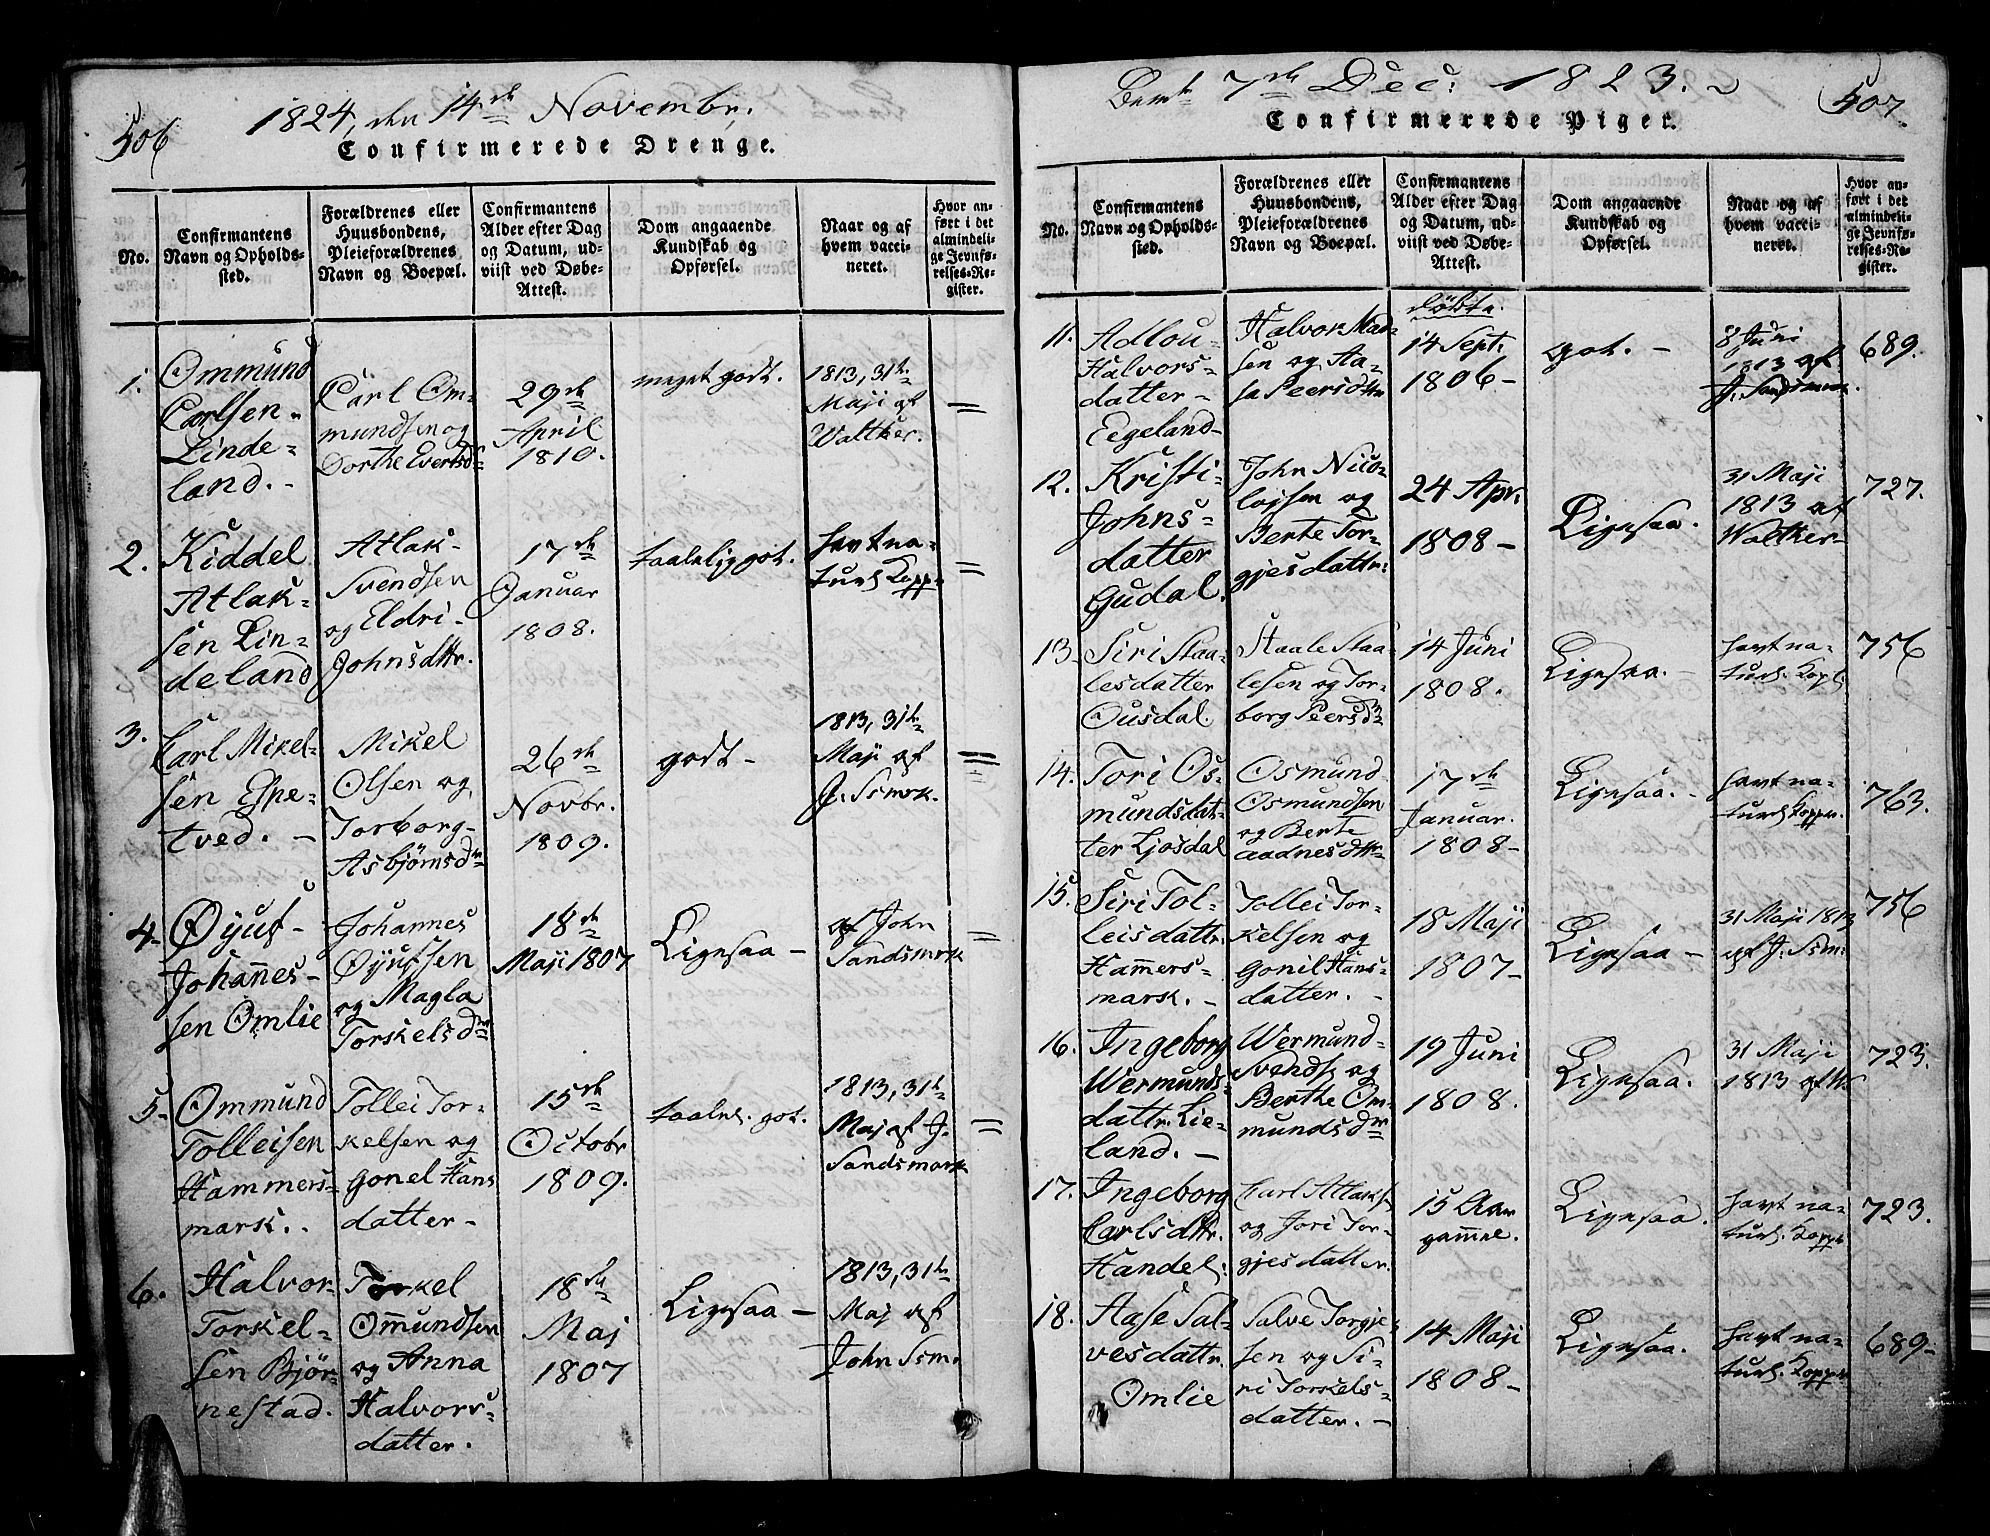 506
1824, den 14de Novembr.
Confirmerede Drenge.
No.
Confirmantens
Navn og Opholds-
sted.
Forældrenes eller
Huusbondens,
Pleieforældrenes
Navn og Boepæl.
Confirmantens
Alder efter Dag
og Datum, ud-
viist ved Døbe-
Attest.
Dom angaaende
Kundskab og
Opførsel.
Naar og af
hvem vacci-
neret.
Hvor an-
ført i det
almindeli-
ge Jevnfø-
relses-Re-
gister.
1.
Ommund
Carlsen
Linde-
land.
Carl Om-
mundsen og
Dorthe Evertsdr
29de
April
1810.
meget godt.
1813, 31te
Maji af
Waltker.
=
2.
Kiddel
Atlak-
sen Lin-
deland
Atlak
Svendsen
og Eldri
Johnsdttr.
17de
Januar
1808.
taalelig got.
havt na-
turl. Kopper
=
3.
Carl Mikel-
sen Espe-
tved. -
Mikel
Olsen og
Torborg
Asbjørnsdr
26de
Novbr.
1809.
godt -
1813, 31te
Maji af
J. Ssmrk.
=
4.
Øyuf
Johannes-
sen Omlie
Johannes
Øyufsen
og Magla
Torskelsdr
18de
Maji 1807
Lignsaa -
af John
Sandsmrk
=
5.
Ommund
Tolleisen
Hammers-
mark.
Tollei Tor-
kelsen og
Gonel Hans
datter -
15de
Octobr
1809.
taalel. got.
1813, 31te
Maj af J.
Sandsmark
=
6.
Halvor
Torskel-
sen Bjør-
nestad.
Torkel
Ommundsen
og Anna
Halvors-
datter.
18de
Maj
1807
Lignsaa -
1813, 31te
Maj af
John Ssm.
507.
7de Dec: 1823.
Confirmerede Piger.
No.
Confirmantens
Navn og Opholds-
sted.
Forældrenes eller
Huusbondens,
Pleieforældrenes
Navn og Boepæl.
Confirmantens
Alder efter Dag
og Datum, ud-
viist ved Døbe-
Attest.
Dom angaaende
Kundskab og
Opførsel.
Naar og af
hvem vacci-
neret.
Hvor an-
ført i det
almindeli-
ge Jevnfø-
relses-Re-
gister.
11.
Adlou
Halvors-
datter -
Eegeland
Halvor Mad-
sen og Aa-
sa Peersdttr
døbte.
14 Sept.
1806 -
got. -
8 Juni
1813 af
J. Sandsmrk.
689.
12.
Kristi
Johns-
datter
Gudal.
John Nico-
lajsen og
Berte Tor-
gjesdattr:
24 Apr.
1808 -
Lignsaa.
31 Maji
1813 af
Waltker
727.
13.
Siri Staa-
lesdatter
Ousdal.
Staale Staa-
lesen og Tor-
borg Peersdr
14 Juni
1808.
Lignsaa. -
havt na-
turl. Kopp
756
14.
Tori Os-
mundsdat-
ter Ljosdal
Osmund
Osmundsen
og Berte
Aadnesdttr
17de
Januar.
1808 -
Lignsaa. -
havt na-
turl. Kopper.
763.
15.
Siri Tol-
leisdattr.
Hammers-
mark. -
Tollei Tor-
kelsen og
Gonil Hans-
datter. -
18 Maji
1807 -
Lignsaa -
31 Maji 1813
af J. Ssm.
756
16.
Ingeborg
Wermunds-
dattr. Lie-
land. -
Wermund
Svends. og
Berthe Om-
mundsdr
19 Juni
1808.
Lignsaa.
31 Maji
1813 af W
723.
17.
Ingeborg
Carlsdttr.
Handel.
Carl Atlaks.
og Jori Tor-
gjesdatter.
15 Aar
gammel.
Lignsaa.
havt na-
turl. Kopper
723.
18.
Aase Sal-
vesdattr.
Omlie
Salve Torgje-
sen og Si-
ri Torskels-
datter. -
14 Maji
1808 -
Lignsaa.
havt na-
turl. Kopper
689 -